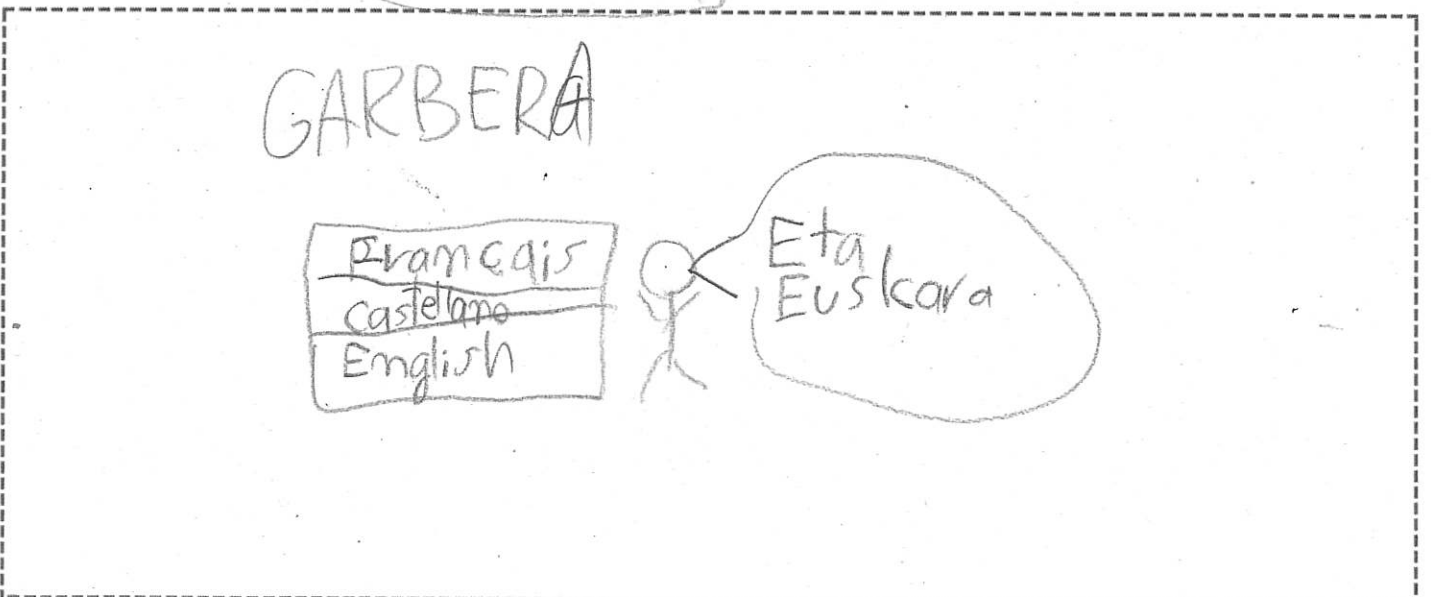 GARBERA
Français
Castellano
English
Eta
Euskara